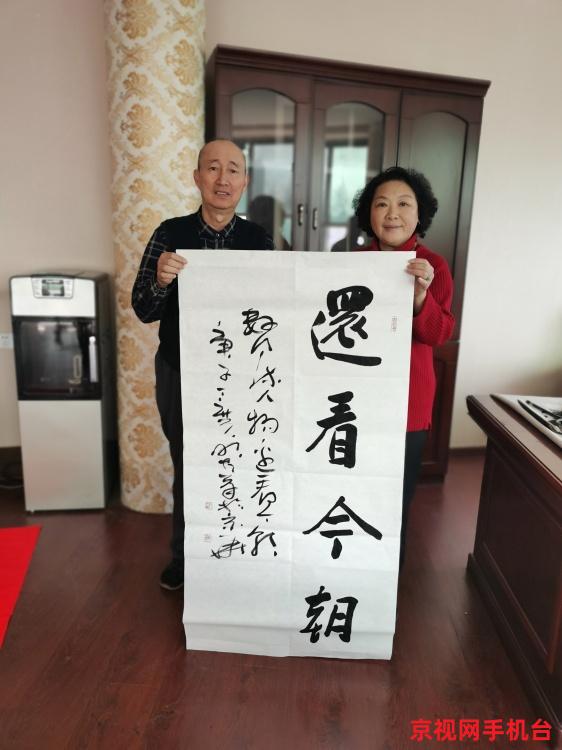 還看今朝
數風流人物還看今朝
庚子
京视网手机台